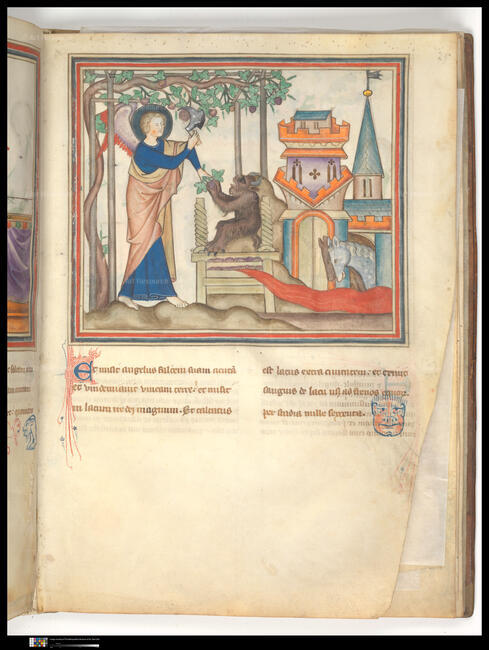 Et misit angelus falcem suam acutā
et vindemiavit vineam terre: et misit
in lacum ire dei magnum. Et calcatus
est lacus extra civitatem: et exivit
sanguis de lacu usq ad frenos equor
per stadia mille sexcenta.